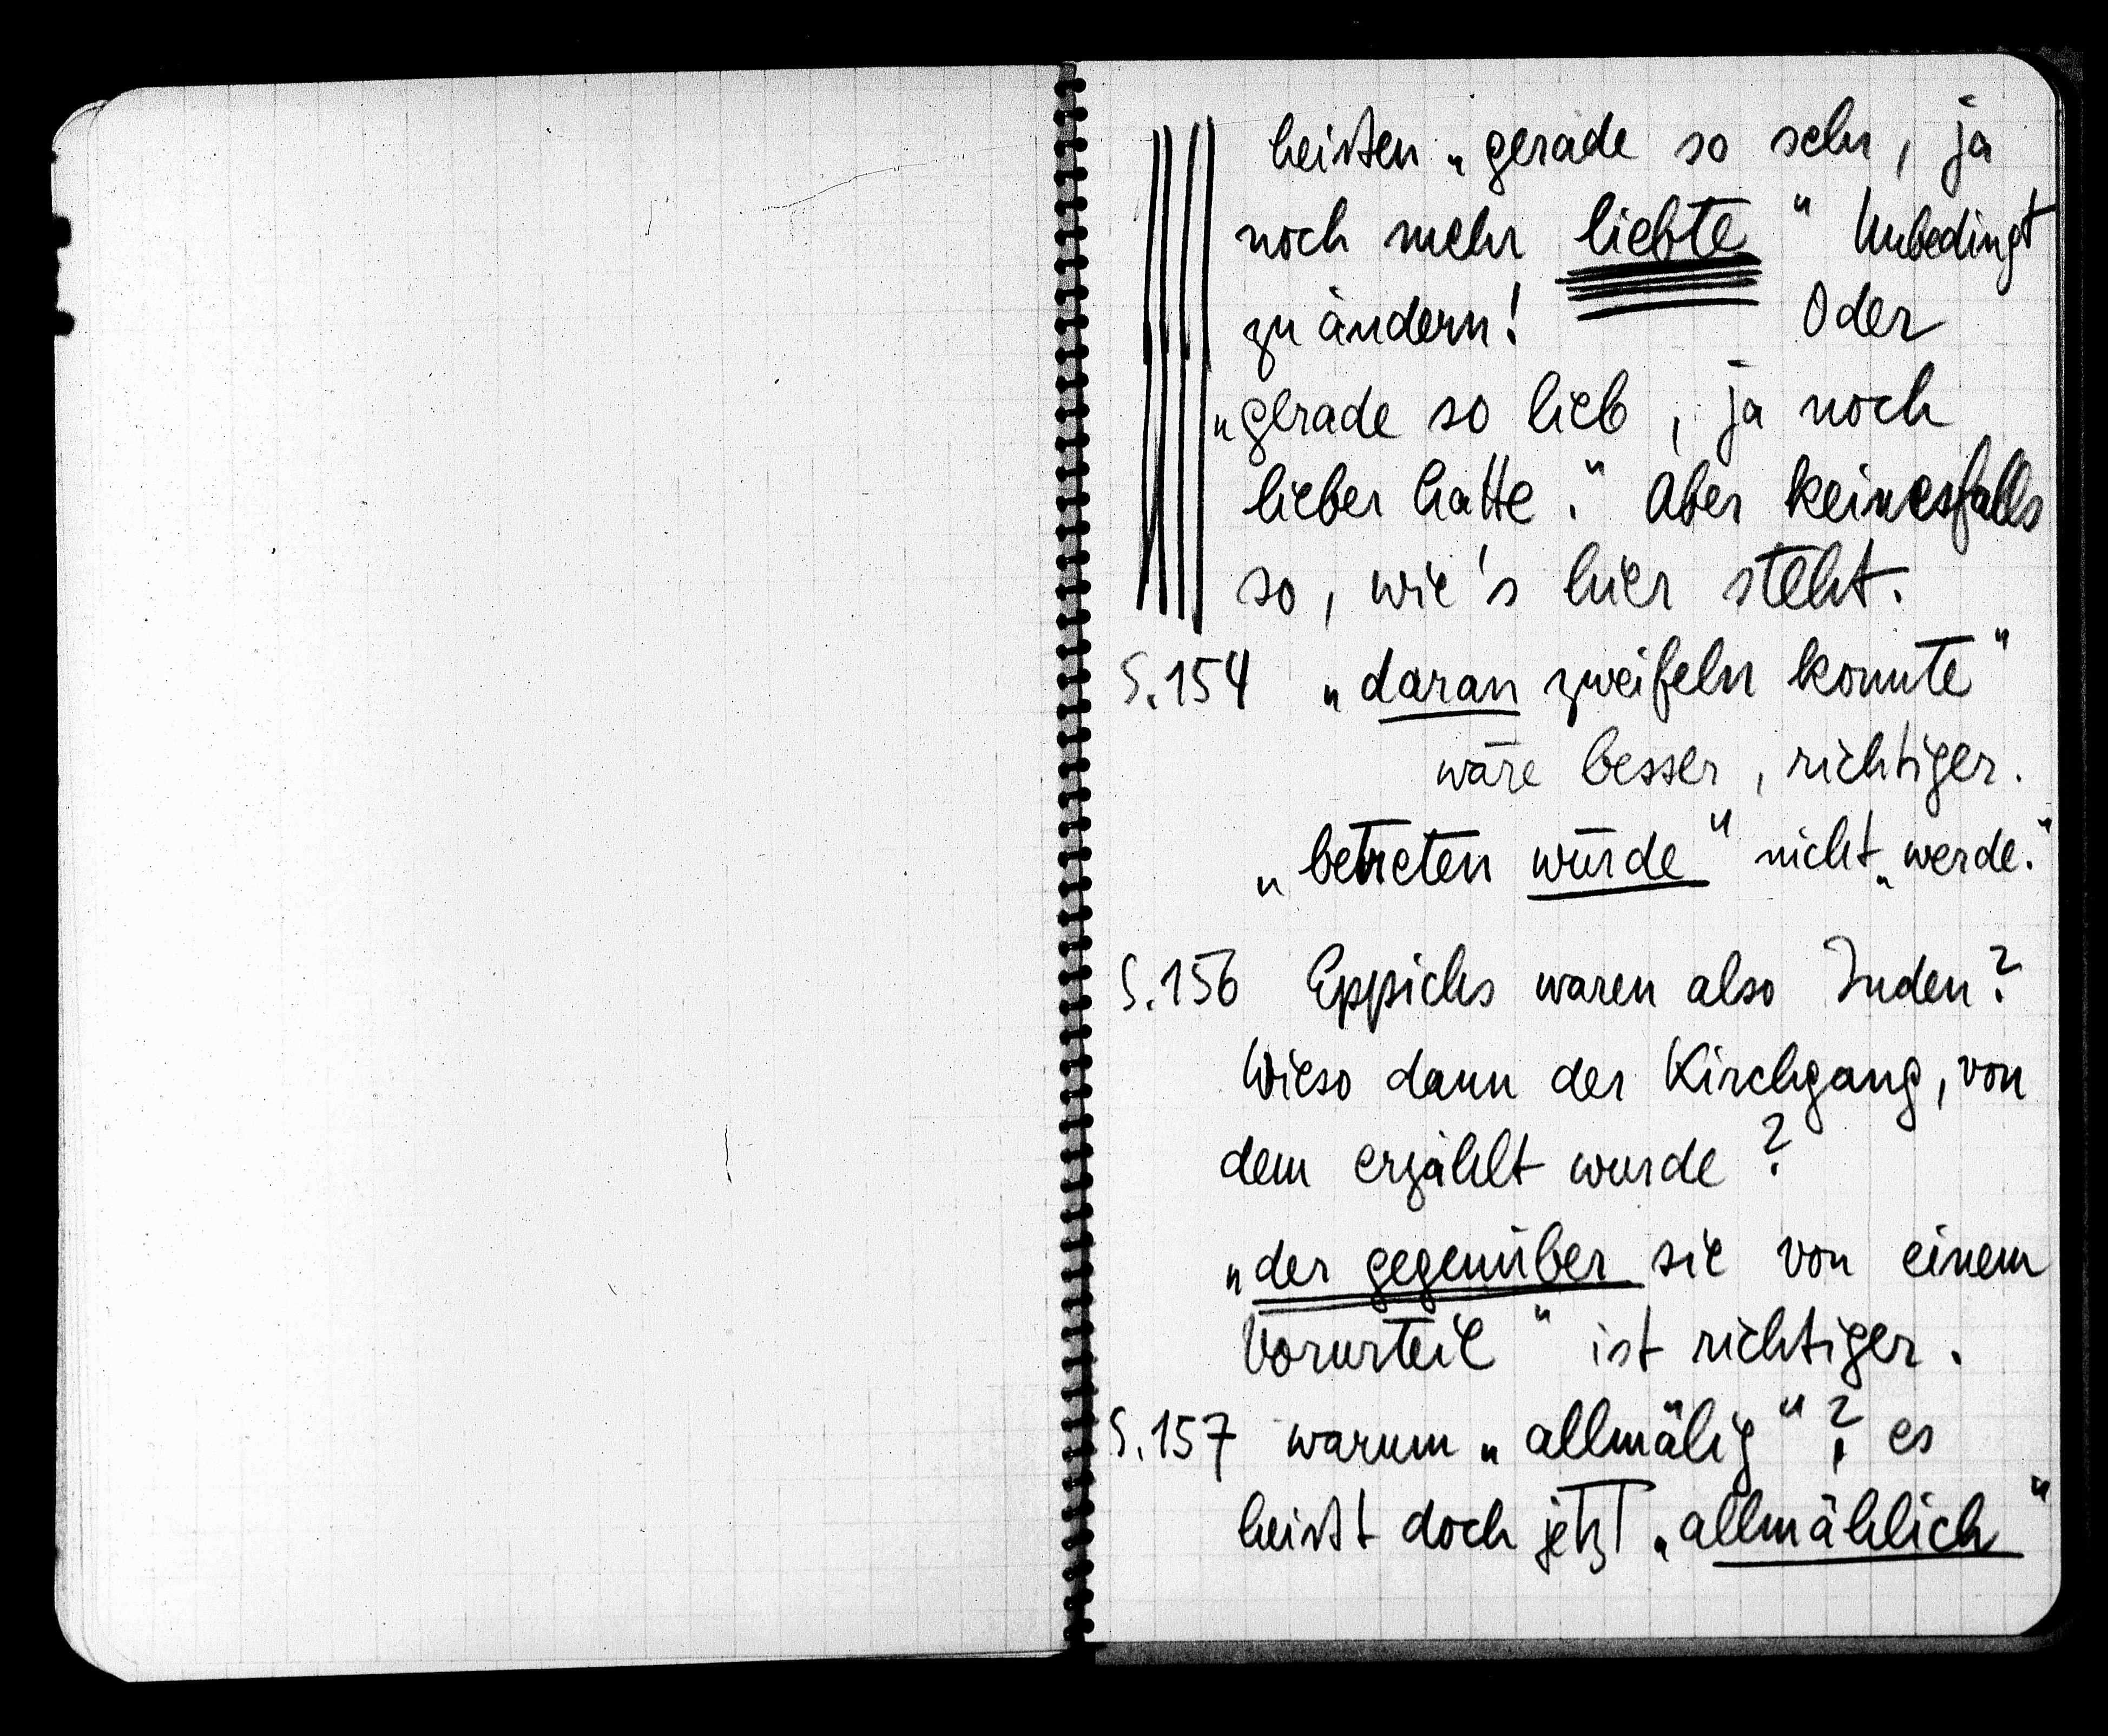 heißen „gerade so sehr, ja
noch mehr liebte" Unbedingt
zu ändern! Oder
„gerade so lieb, ja noch
lieber hatte." Aber keinesfalls
so, wie's hier steht.
S.154 „daran zweifeln konnte"
wäre besser, richtiger.
„betreten würde" nicht „werde."
S.156 Eppichs waren also Juden?
Wieso dann der Kirchgang, von
dem erzählt wurde?
„der gegenüber sie von einem
Vorurteil" ist richtiger.
S.157 warum „allmälig"? es
heißt doch jetzt „allmählich"